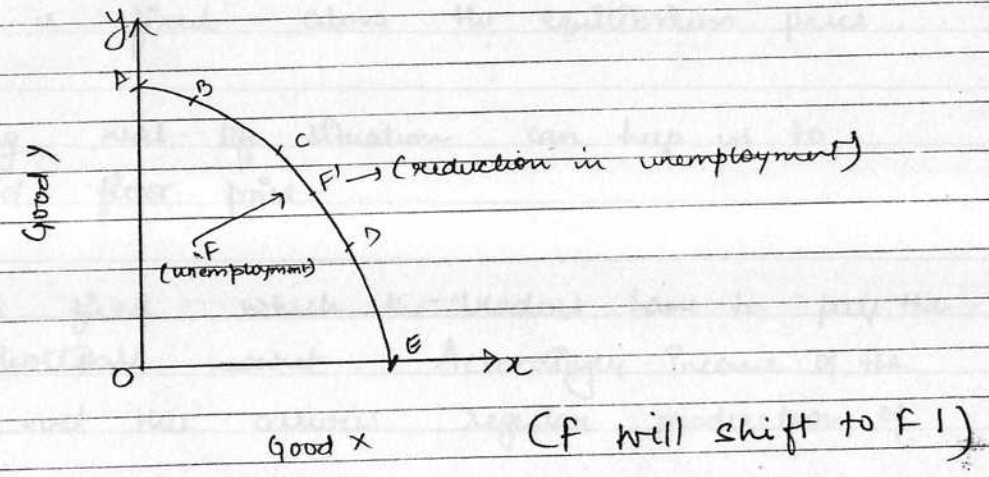 y
A
B
C
F' → (reduction in unemployment)
Good Y
.F
(unemployment)
D
E
O
x
Good X
(F will shift to F')